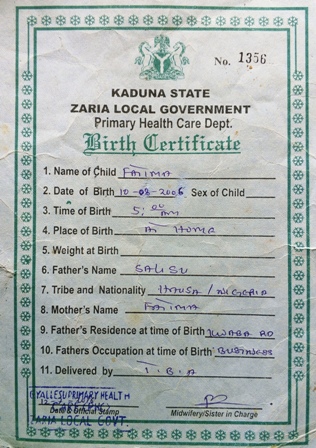 No. 1356
KADUNA STATE
ZARIA LOCAL GOVERNMENT
Primary Health Care Dept.
Birth Certificate
1. Name of Child FATIMA
2. Date of Birth 10-08-2006 Sex of Child
3. Time of Birth 5:00 AM
4. Place of Birth At HOME
5. Weight at Birth
6. Father's Name SALISU
7. Tribe and Nationality HAUSA / NIGERIA
8. Mother's Name FATIMA
9. Father's Residence at time of Birth IWABA RD
10. Fathers Occupation at time of Birth BUSINESS
11. Delivered by T.B.A
GYALLESU PRIMARY HEALTH
Date & Official Stamp
ZARIA LOCAL GOVT.
Midwifery/Sister in Charge